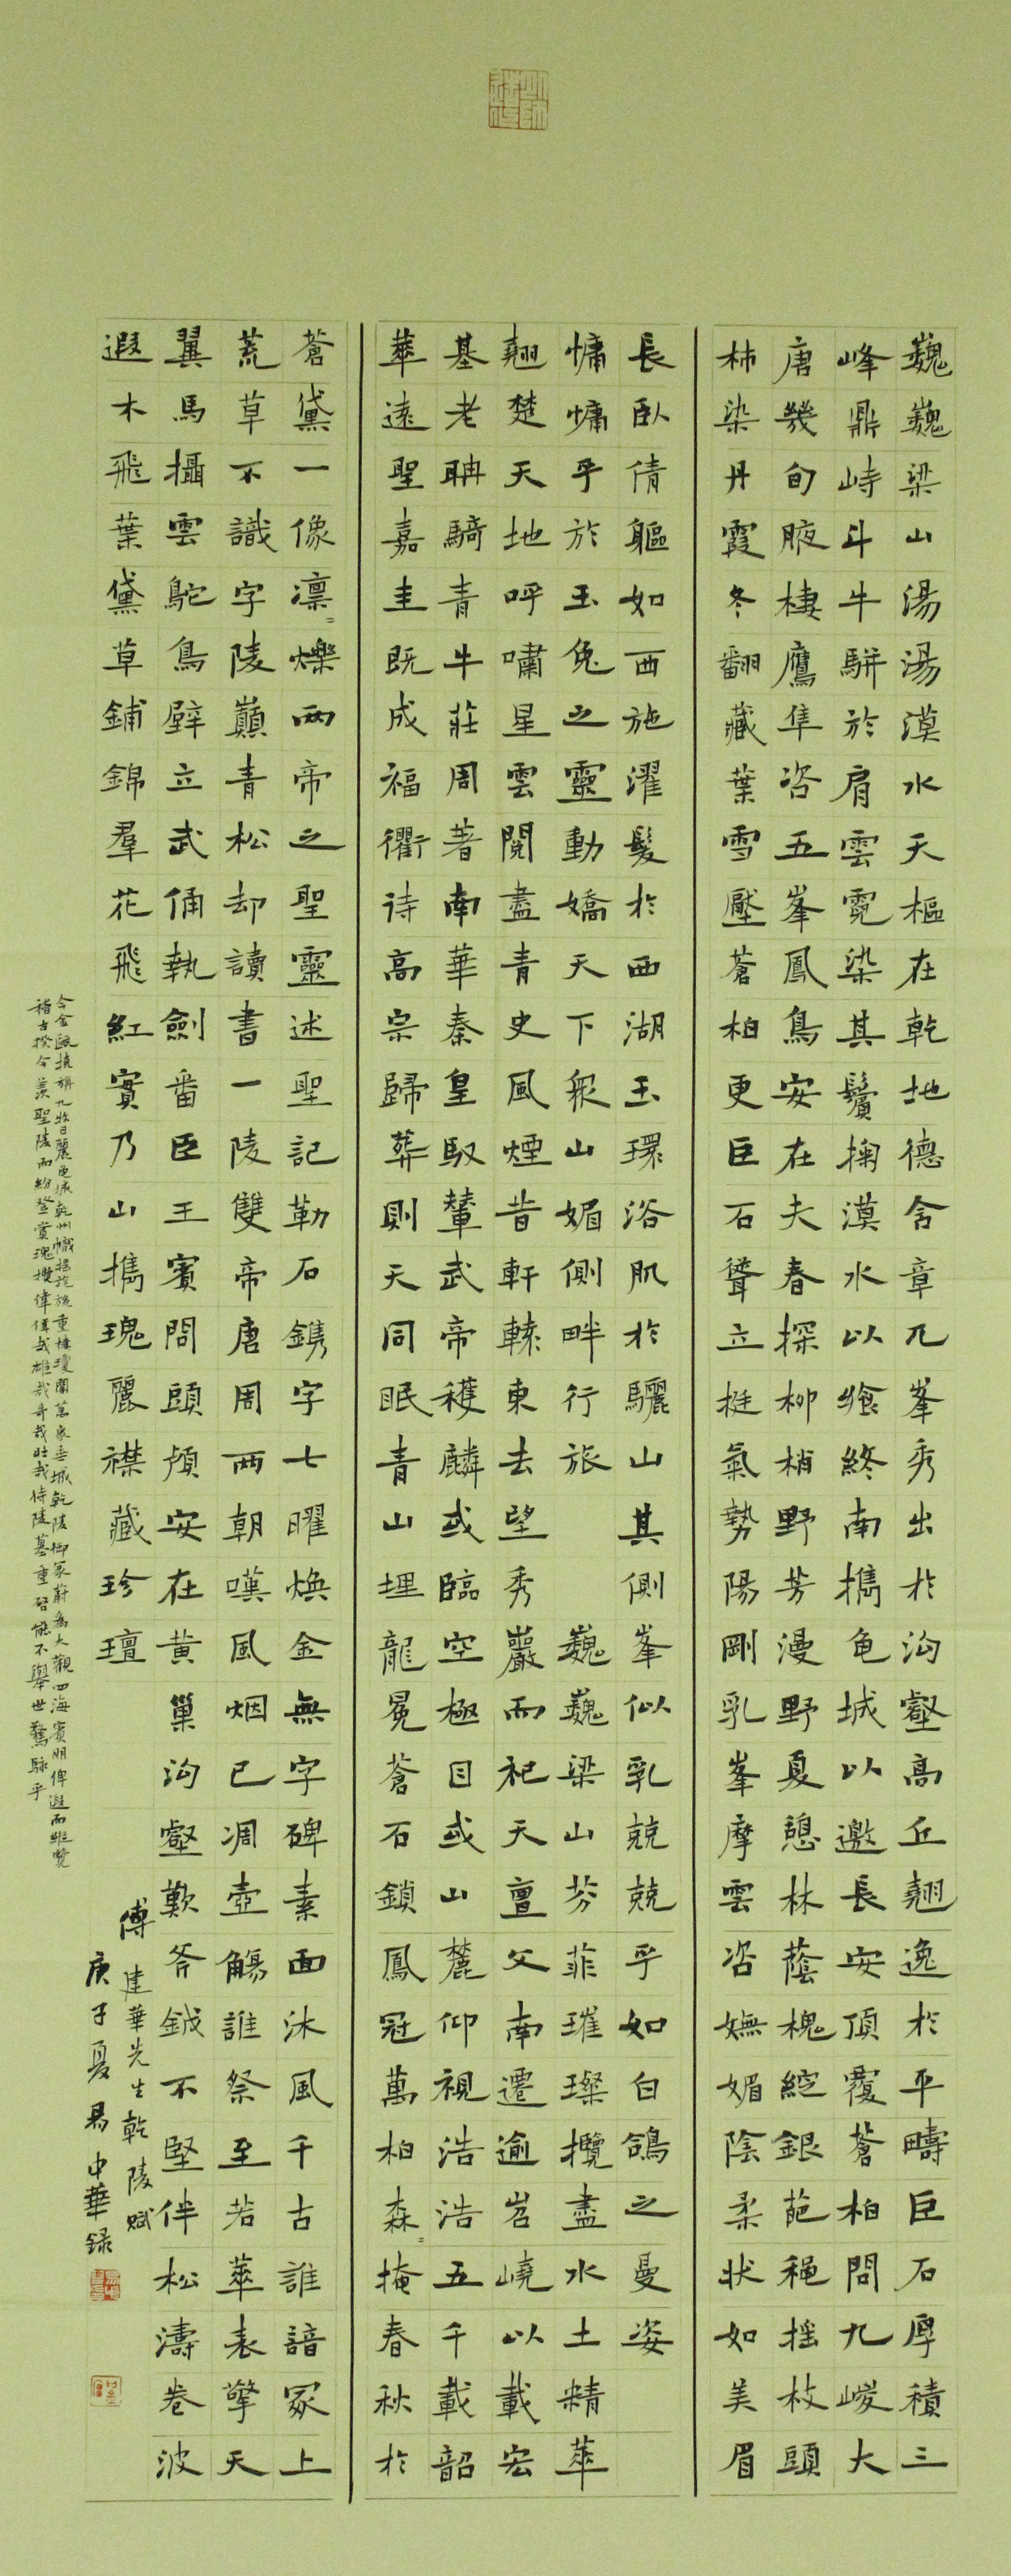 巍巍梁山湯湯漠水天樞在乾地德含章兀峯秀出於沟壑高丘翹逸於平疇巨石厚積三
峰鼎峙斗牛駢於肩雲霓染其鬢掬漠水以飨終南擕龟城以邀長安頂覆蒼柏問九嵕大
唐幾旬腋棲鷹隼咨五峯鳳鳥安在夫春探柳梢野芳漫野夏憩林蔭槐綻銀葩穐摇枝頭
柿染丹霞冬翻藏葉雪壓蒼柏更巨石聳立挺氣勢陽剛乳峯摩雲咨嫵媚陰柔狀如美眉
長臥倩軀如西施濯髮於西湖玉環浴肌於驪山其側峯似乳兢兢乎如白鴿之曼姿
慵慵乎於玉兔之靈動嬌天下衆山媚側畔行旅巍巍梁山芬菲璀璨攬盡水土精華
翹楚天地呼嘯星雲閱盡青史風煙昔軒轅東去望秀巖而祀天亶父南遷逾岧嶢以載宏
基老聃騎青牛莊周著南華秦皇馭輦武帝穫麟或臨空極目或山麓仰視浩浩五千載韶
華遠聖嘉圭既成福衢待高宗歸葬則天同眠青山埋龍冕蒼石鎖鳳冠萬柏森〻掩春秋於
蒼黛一像凛〻爍兩帝之聖靈述聖記勒石鐫字七曜焕金無字碑素面沐風千古誰諳冢上
荒草不識字陵巔青松却讀書一陵雙帝唐周兩朝嘆風烟已凋壺觴誰祭至若華表擎天
翼馬攝雲鴕鳥壁立武俑執劍番臣王賓問頭顱安在黄巢沟壑歎斧鉞不堅伴松濤卷波
遐木飛葉黛草鋪錦羣花飛紅實乃山擕瑰麗襟藏珍璮
今金甌摭稱九牧日麗龟城乾州幟揚旌旎重樓瓊閣萬家垂城乾陵御冢蔚為大觀四海賓朋俾遊而縱覽
稽古揆今羨聖陵而紛登賞瑰攬偉偉哉雄哉奇哉壮哉侍陵墓重啓能不舉世驚駭乎
傅建華先生乾陵賦
庚子夏易中華録